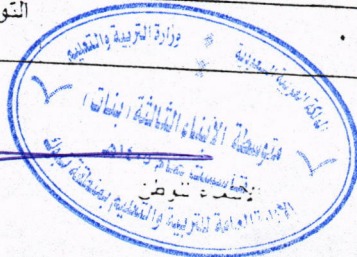 التو
.
المملكة العربية السعودية
وزارة التربية والتعليم
متوسطة الأبناء الثالثة (بنات)
تأسست عام
الإدارة العامة للتربية والتعليم بمنطقة